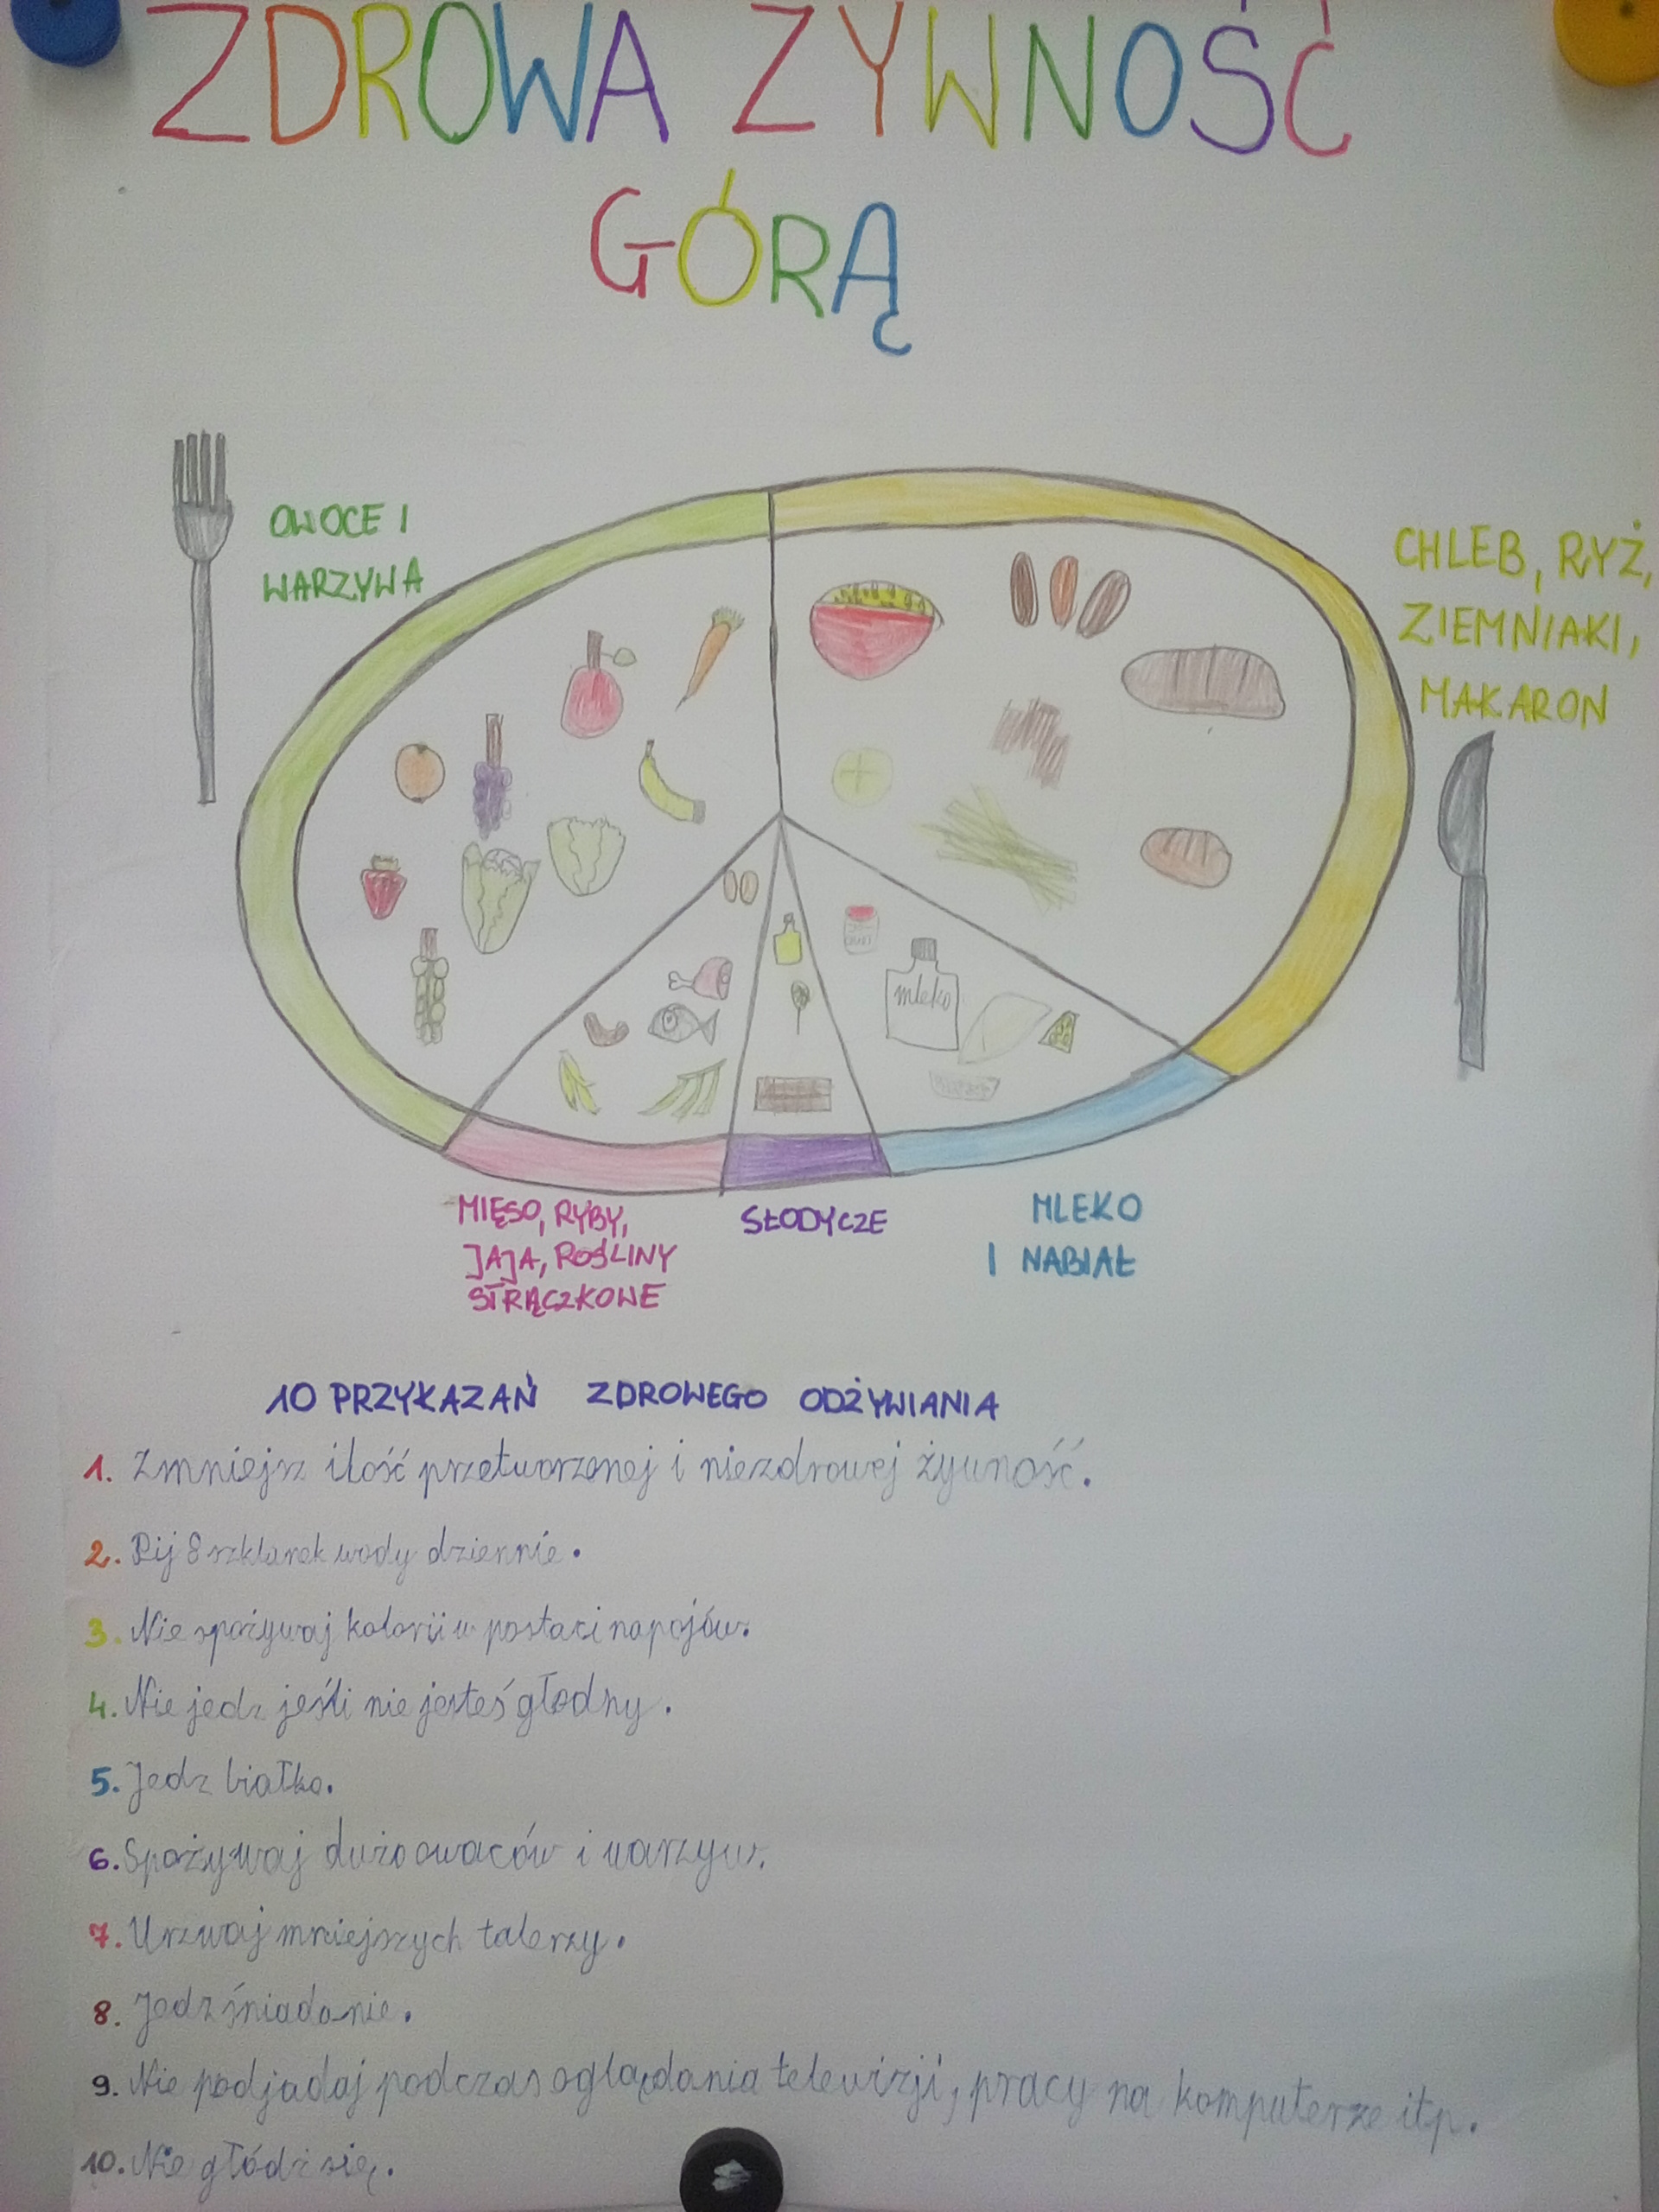 ZDROWA ZYWNOŚĆ
GÓRĄ
OWOCE I
WARZYWA
CHLEB, RYŻ,
ZIEMNIAKI,
MAKARON
mleko
MIĘSO, RYBY,
JAJA, ROŚLINY
STRĄCZKOWE
SŁODYCZE
MLEKO
I NABIAŁ
10 PRZYKAZAŃ ZDROWEGO ODŻYWIANIA
1. Zmniejsz ilość przetworzonej i niezdrowej żywność.
2. Pij 8 szklanek wody dziennie.
3. Nie spożywaj kalorii w postaci napojów.
4. Nie jedz jeśli nie jesteś głodny.
5. Jedz białko.
6. Spożywaj dużo owoców i warzyw.
7. Urzwaj mniejszych talerzy.
8. Jedz śniadanie.
9. Nie podjadaj podczas oglądania telewizji, pracy na komputerze itp.
10. Nie głódź się.